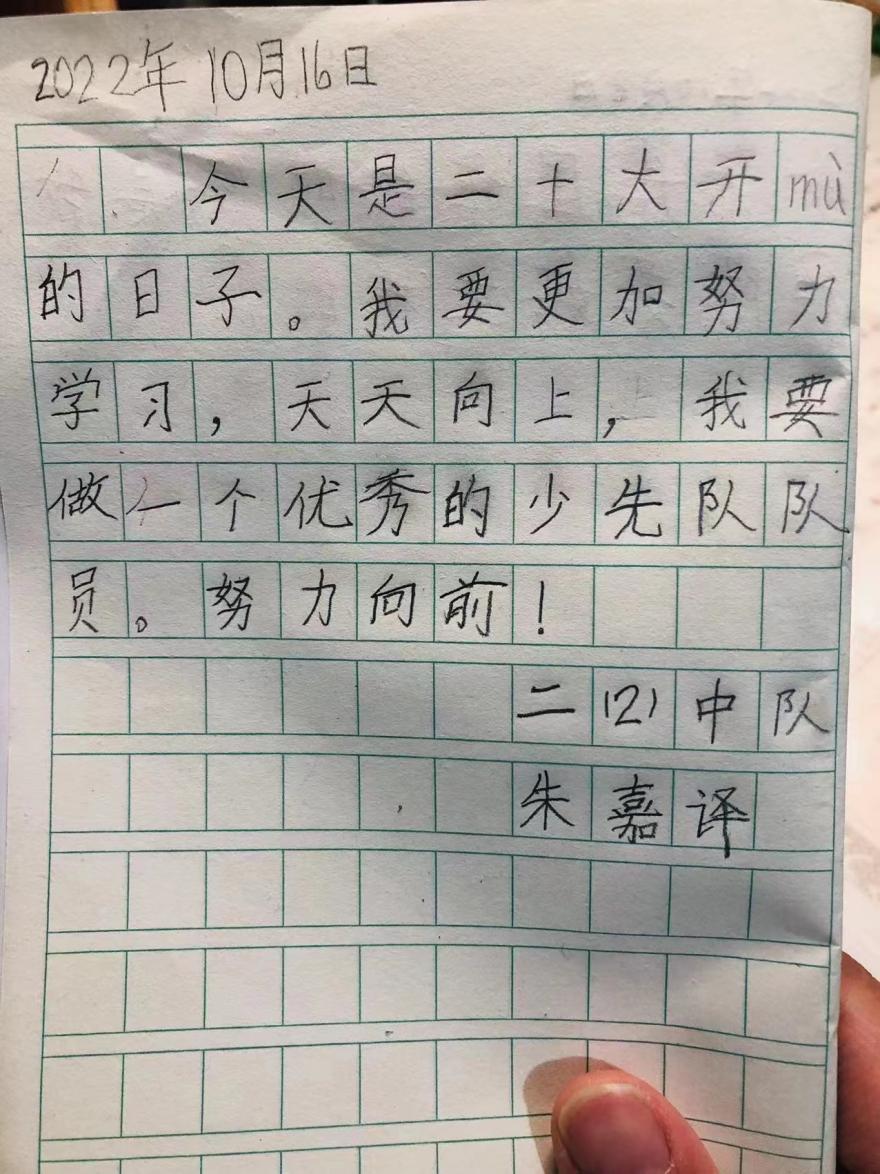 2022年10月16日
今天是二十大开mù
的日子。我要更加努力
学习，天天向上，我要
做一个优秀的少先队队
员。努力向前！
二（2）中队
朱嘉译